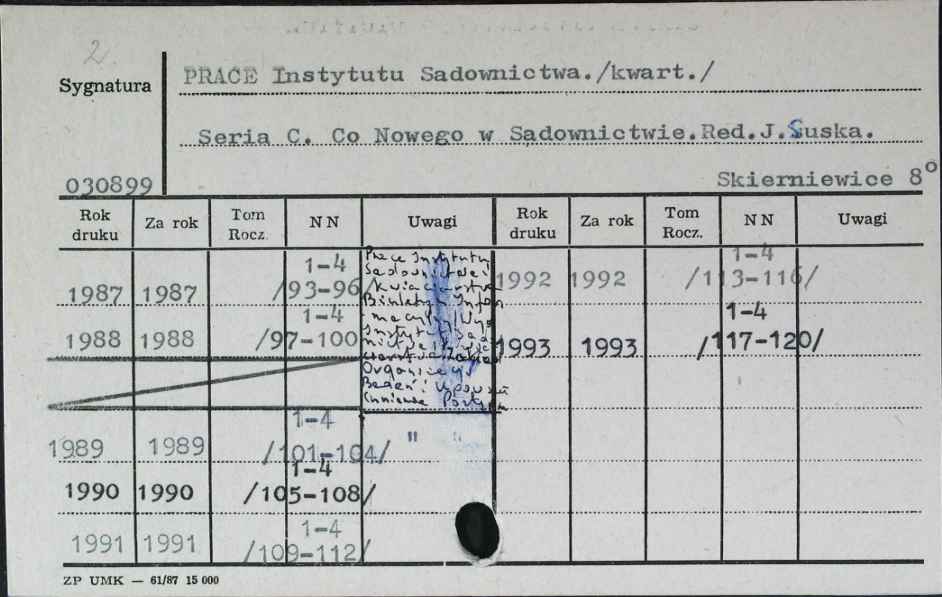 2.
Sygnatura
PRACE Instytutu Sadownictwa./kwart./
Seria C. Co Nowego w Sadownictwie.Red.J.Suska.
030899
Skierniewice 8°
Rok druku Za rok Tom Rocz. NN Uwagi Rok druku Za rok Tom Rocz. NN Uwagi
1987 1987 1-4 /93-96/
1988 1988 1-4 /97-100
Prace Instytutu
Organizacji
1989 1989 1-4 /101-104/ " "
1990 1990 1-4 /105-108/
1991 1991 1-4 /109-112/
1992 1992 1-4 /113-116/
1993 1993 1-4 /117-120/
ZP UMK — 61/87 15 000